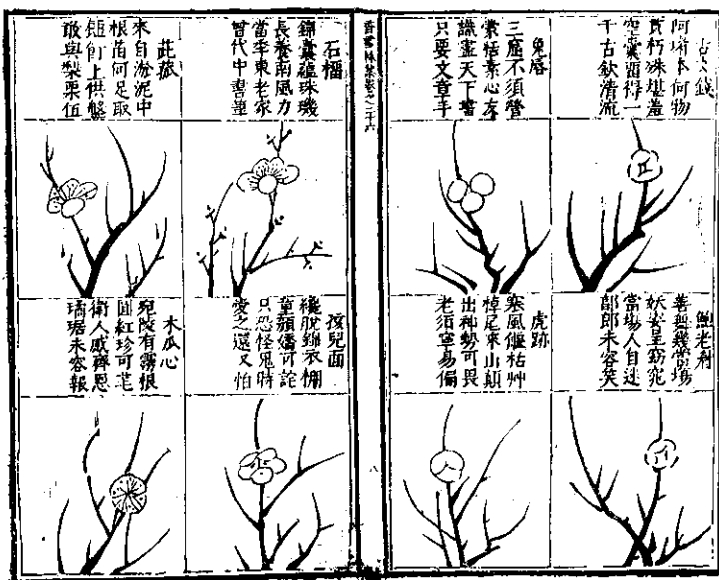 古文錢
阿堵本何物
貫朽殊堪羞
空囊留得一
千古欽清流
兔唇
三窟不須營
蒙恬素心友
識盡天下書
只要文章手
鮑老
幾當場
妖姿呈窈窕
當場人自迷
郭郎未容笑
虎跡
寒風偃枯艸
掉尾來山顛
出神勢可畏
老須寧易偏
卷之二十六
八
石榴
錦囊蘊珠璣
長養南風力
東老家
曾代中書筆
茈菰
來自淤泥中
根苗何足取
上供盤
敢與梨栗伍
孩兒面
纔脫錦衣棚
童顏嬌可詫
只恐 時
愛之還又怕
木瓜心
宛陵有靈根
圓紅珍可芼
衛人感齊恩
瓊琚未容報